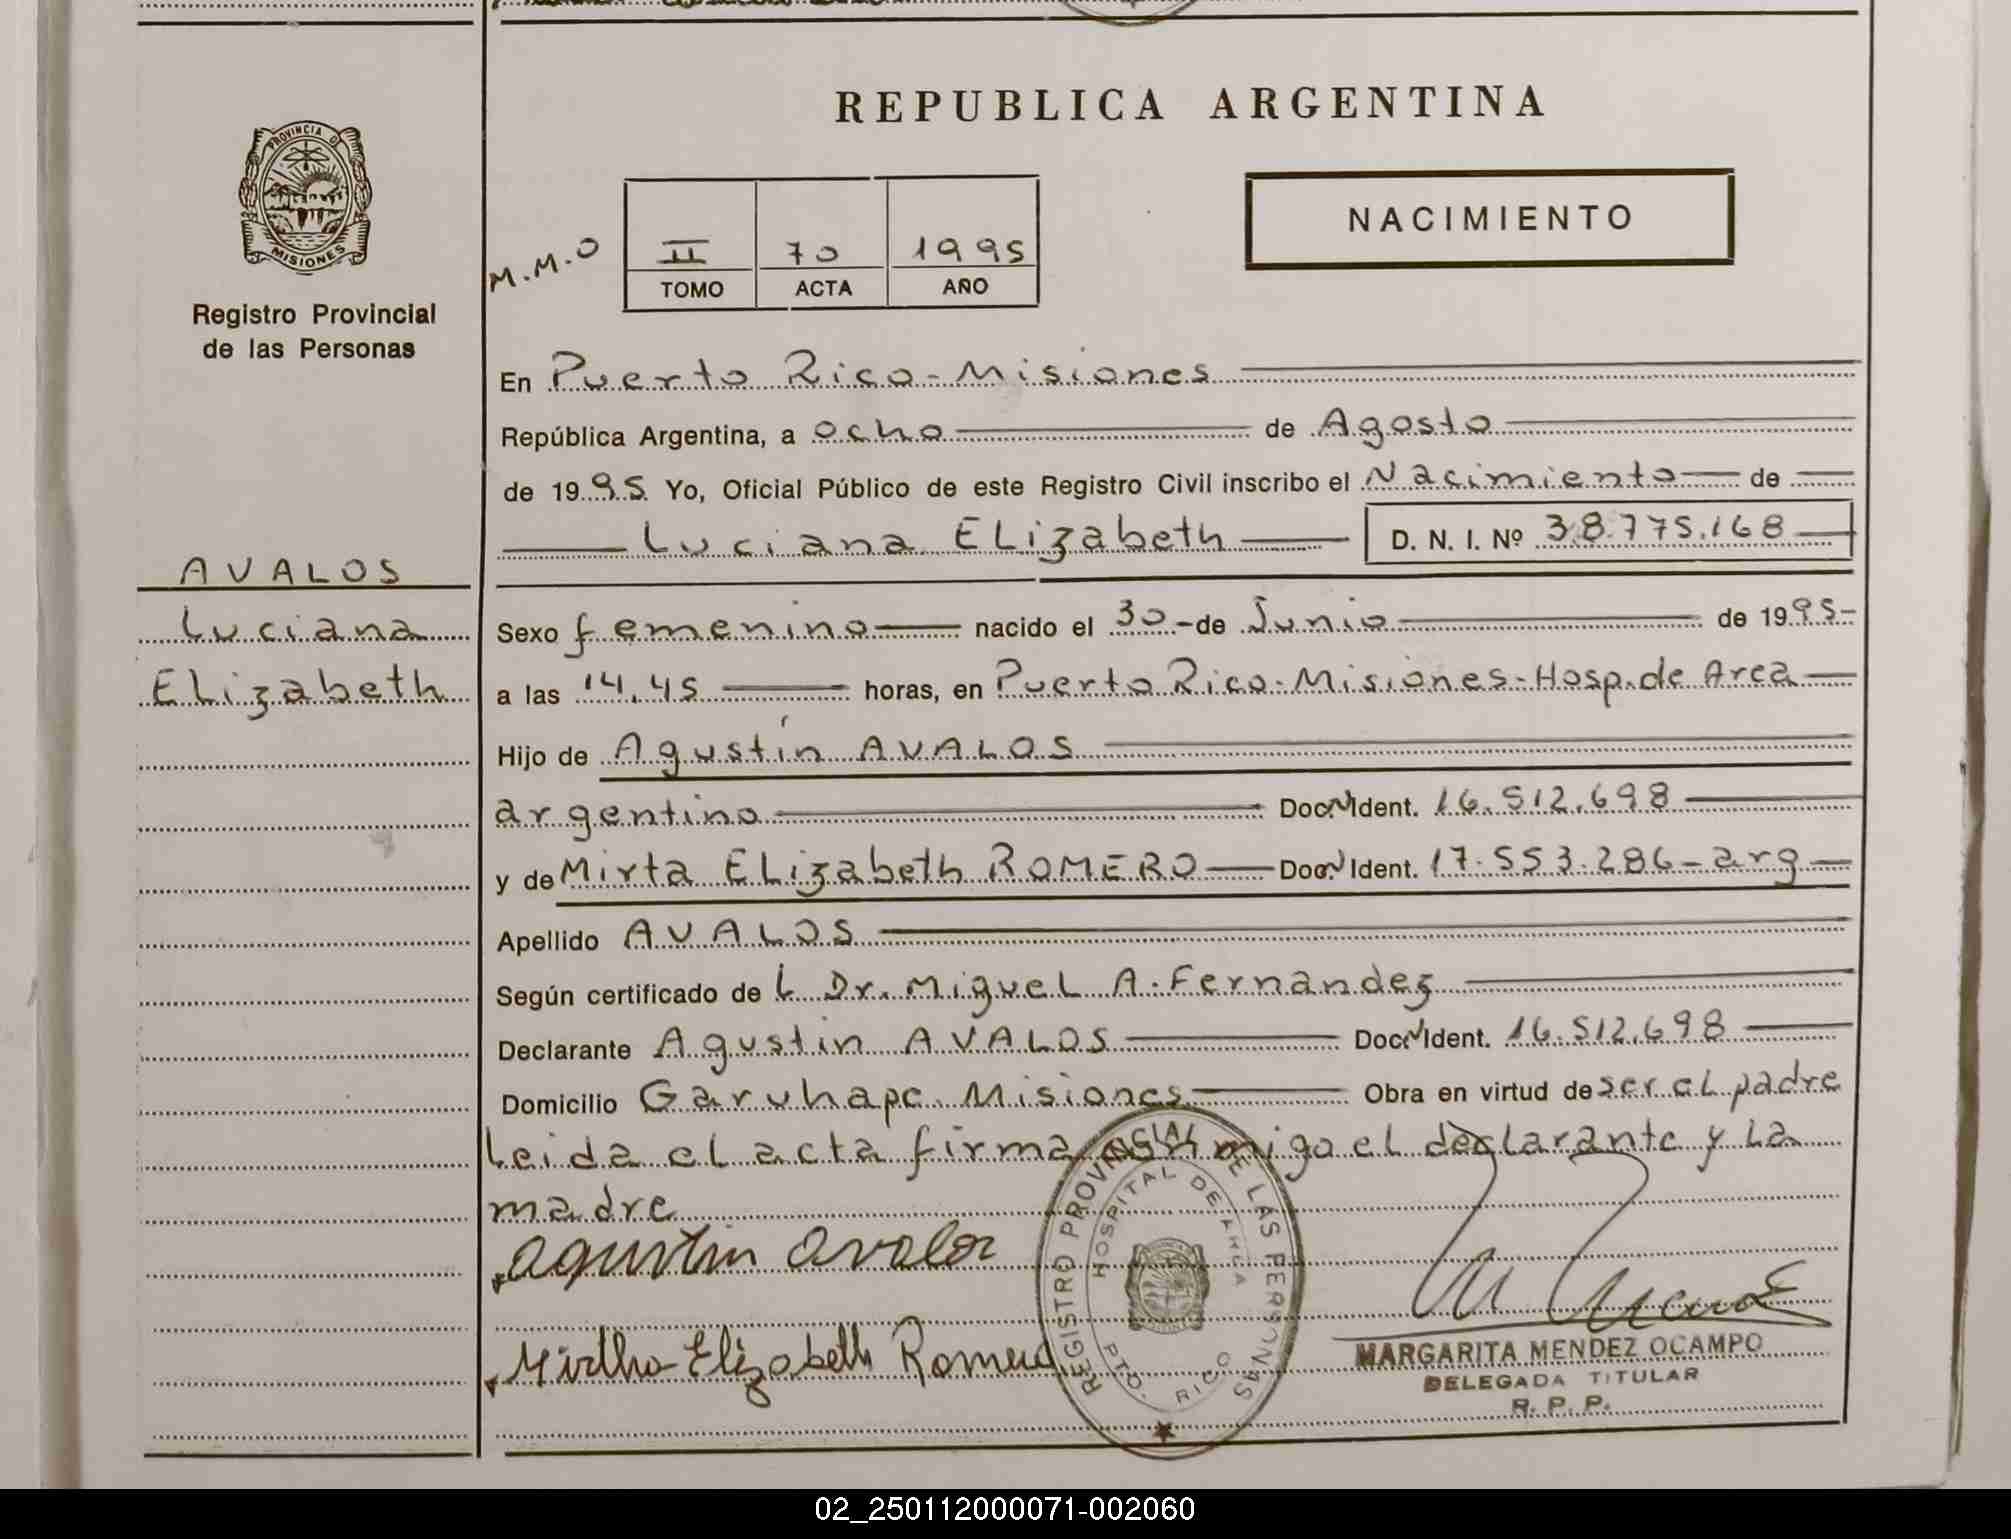 REPUBLICA ARGENTINA
PROVINCIA DE
MISIONES
Registro Provincial
de las Personas
M.M.O
II 70 1995
TOMO ACTA AÑO
NACIMIENTO
AVALOS
Luciana
Elizabeth
En Puerto Rico-Misiones
República Argentina, a ocho de Agosto
de 1995 Yo, Oficial Público de este Registro Civil inscribo el Nacimiento de
Luciana Elizabeth D. N. I. Nº 38.775.168
Sexo femenino nacido el 30 - de Junio de 1995-
a las 14,45 horas, en Puerto Rico-Misiones-Hosp.de Area
Hijo de Agustín AVALOS
argentino Doc. Ident. 16.512.698
y de Mirta Elizabeth ROMERO Doc. Ident. 17.553.286-arg
Apellido AVALOS
Según certificado de L Dr. Miguel A. Fernandez
Declarante Agustin AVALOS Doc. Ident. 16.512.698
Domicilio Garuhape Misiones Obra en virtud de ser el padre
Leida el acta firma conmigo el declarante y La
madre
agustin avalos
Mirtha Elizabeth Romero
REGISTRO PROVINCIAL DE LAS PERSONAS
HOSPITAL DE AREA
PTO. RICO
MARGARITA MENDEZ OCAMPO
DELEGADA TITULAR
R. P. P.
02_250112000071-002060